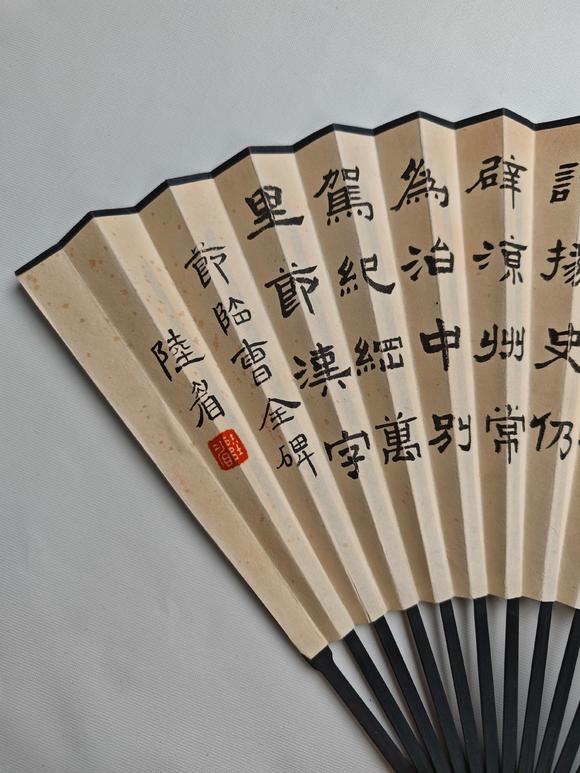 計掾史仍
辟涼州常
為治中別
駕紀綱萬
里節漢字
節臨曹全碑
陸